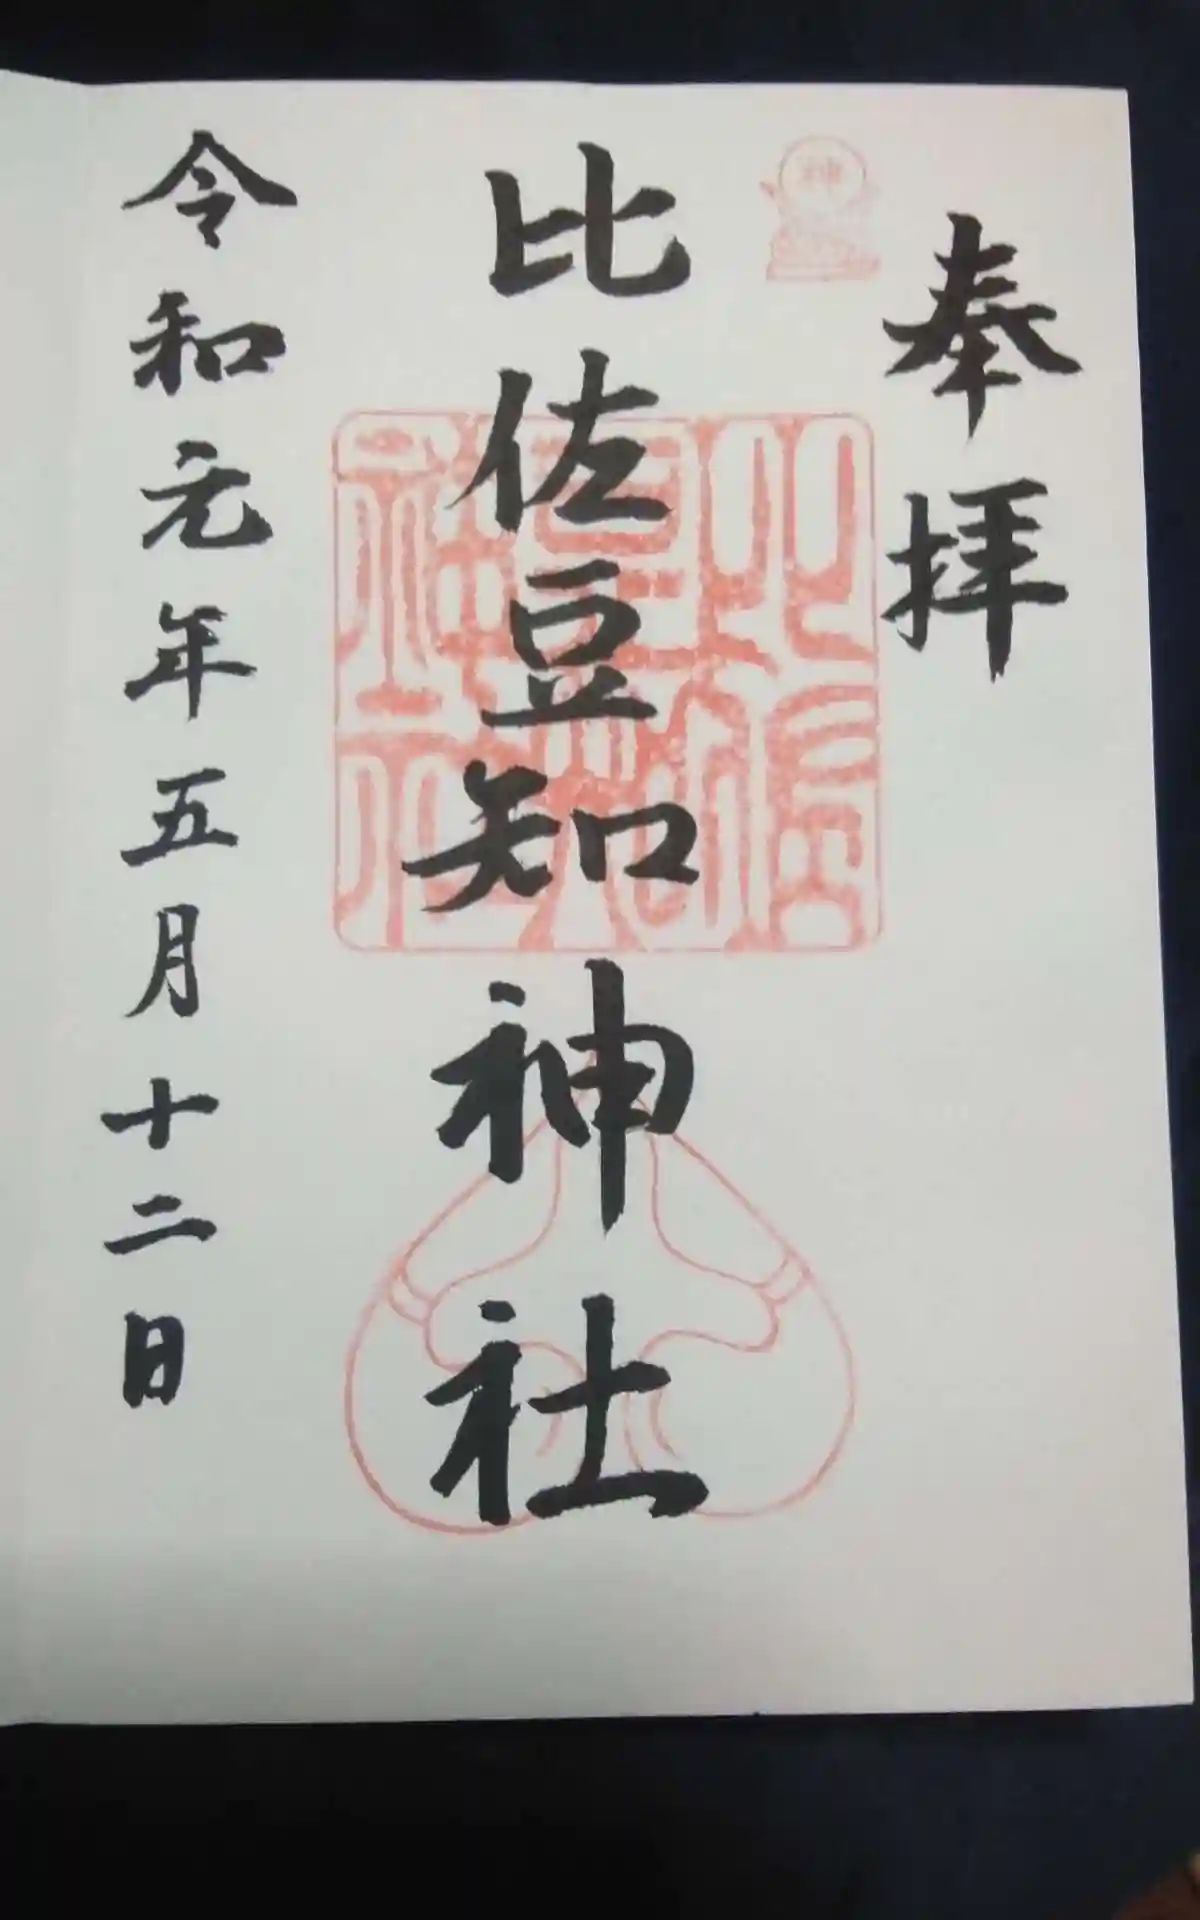 奉拝
神
比佐豆知神社
比佐豆知神社
令和元年五月十二日